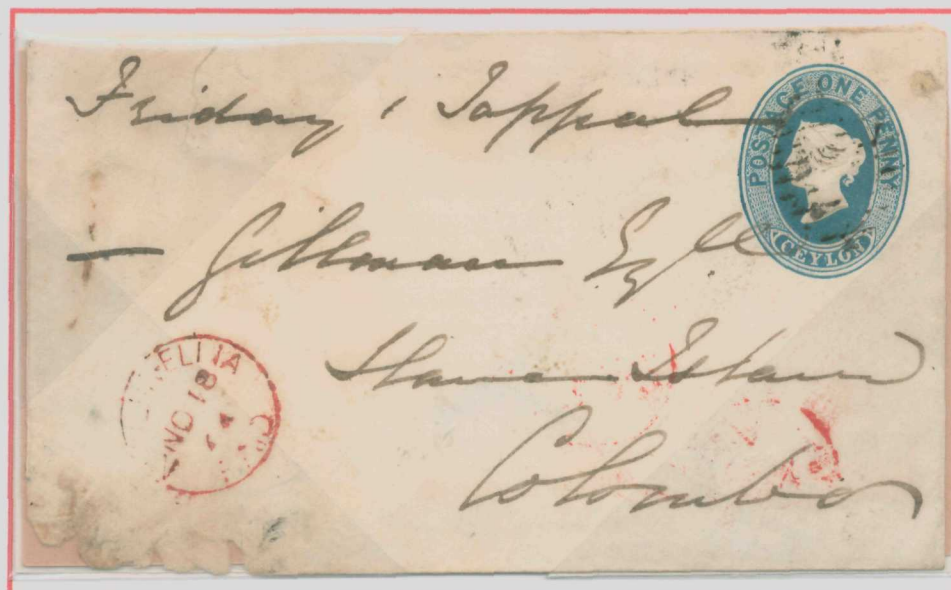 Friday's Tappal
POSTAGE ONE PENNY
CEYLON
— Gillman Esqre
Slave Island
Colombo
ELLIA